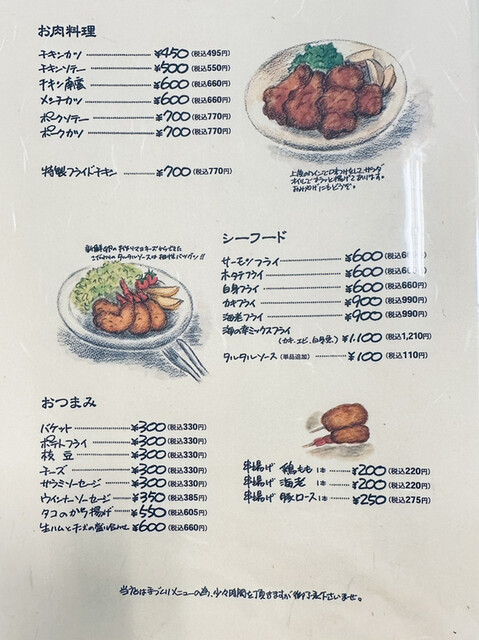 お肉料理
チキンカツ ¥450(税込495円)
チキンソテー ¥500(税込550円)
チキン南蛮 ¥600(税込660円)
メンチカツ ¥600(税込660円)
ポークソテー ¥700(税込770円)
ポークカツ ¥700(税込770円)
特製フライドチキン ¥700(税込770円)
シーフード
サーモンフライ ¥600(税込
ホタテフライ ¥600(税込
白身フライ ¥600(税込660円)
カキフライ ¥900(税込990円)
海老フライ ¥900(税込990円)
海の幸ミックスフライ
(カキ、エビ、白身魚) ¥1,100(税込1,210円)
タルタルソース(単品追加) ¥100(税込110円)
おつまみ
バゲット ¥300(税込330円)
ポテトフライ ¥300(税込330円)
枝豆 ¥300(税込330円)
チーズ ¥300(税込330円)
サラミソーセージ ¥300(税込330円)
ウインナーソーセージ ¥350(税込385円)
タコのから揚げ ¥550(税込605円)
生ハムとチーズの盛り合わせ ¥600(税込660円)
串揚げ 鶏もも 1本 ¥200(税込220円)
串揚げ 海老 1本 ¥200(税込220円)
串揚げ 豚ロース 1本 ¥250(税込275円)
当店は手づくりメニューの為、少々時間を頂きますが御了承下さいませ。